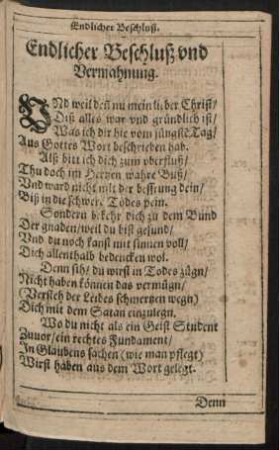 Endlicher Beschluß.
Endlicher Beschluß vnd
Vermahnung.
VNd weil deñ nu mein lieber Christ/
Diß alles war vnd gründlich ist/
Was ich dir hie vom jüngste Tag/
Aus Gottes Wort beschrieben hab.
Alß bitt ich dich zum vberfluß/
Thu doch im Hertzen wahre Buß/
Vnd ward nicht mit der bessrung dein/
Biß in die schwere Todes pein.
Sondern bekehr dich zu dem Bund
Der gnaden/weil du bist gesund/
Vnd du noch kanst mit sinnen voll/
Dich allenthalb bedencken wol.
Denn sih/ du wirst in Todes zügn/
Nicht haben können das vermügn/
(Versteh der Leibes schmertzen wegn)
Dich mit dem Satan einzulegn.
Wo du nicht als ein Geist Student
Zuuor/ ein rechtes Fundament/
In Glaubens sachen (wie man pflegt)
Wirst haben aus dem Wort gelegt.
Denn